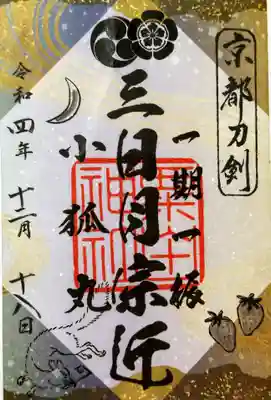 京都刀剣
一期一振
三日月宗近
小狐丸
粟田神社
令和四年十二月十八日